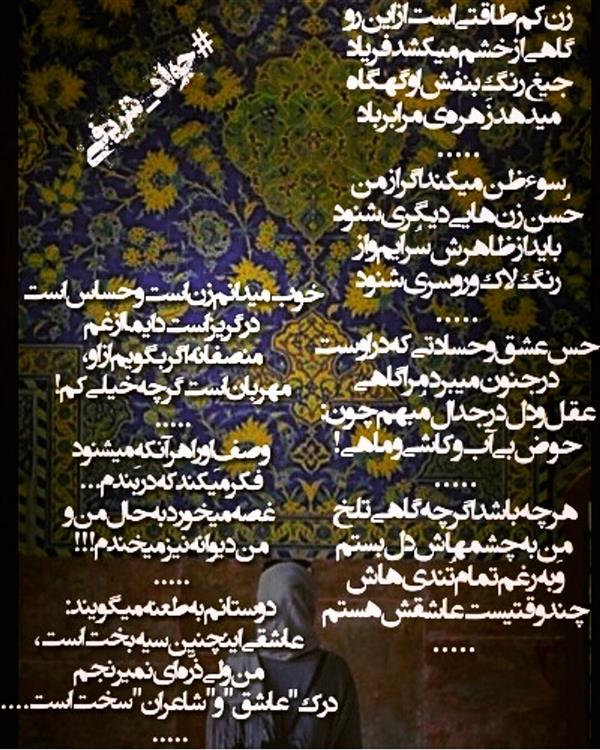 #جواد_مزنگی
زن کم طاقتی است از این رو
گاهی از خشم میکشد فریاد
جیغ رنگ بنفش او گهگاه
میدهد زَهره‌ی مرا بر باد
.....
سوءِ ظن میکند اگر از من
حسن زن هایی دیگری شنود
باید از ظاهرش سُرایم و از
رنگ لاک و روسری شنود
.....
حس عشق و حسادتی که در اوست
در جنون میبرد مرا گاهی
عقل و دل در جدال مبهم چون:
حوض بی آب و کاشی و ماهی!
.....
هر چه باشد اگر چه گاهی تلخ
منِ به چشمهاش دل بستم
و به رغم تمام تُندی هاش
چند وقتیست عاشقش هستم
.....
خوب میدانم زن است و حساس است
در گریز است دایما از غم
منصفانه اگر بگویم از او،
مهربان است گرچه خیلی کم!
.....
وصف او را هر آنکه میشنود
فکر میکند که در بَندم...
غصه میخورد به حال من و
من دیوانه نیز میخندم!!!
.....
دوستانم به طعنه میگویند:
عاشقی اینچنین سیه بخت است،
من ولی ذره ای نمیرنجم
درک "عاشق" و "شاعران" سخت است....
.....